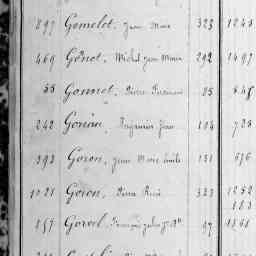 897 Gomelet, Jean Marie 323 1243
469 Gonet, Michel Jean Marie 292 1497
55 Gonnet, Pierre 85 848
242 Gonian, Benjamin Jean 104 728
393 Goron, Jean Marie Emile 151 676
1021 Goron, Pierre René 323 1252
183
157 Gorvel, François 97 1861